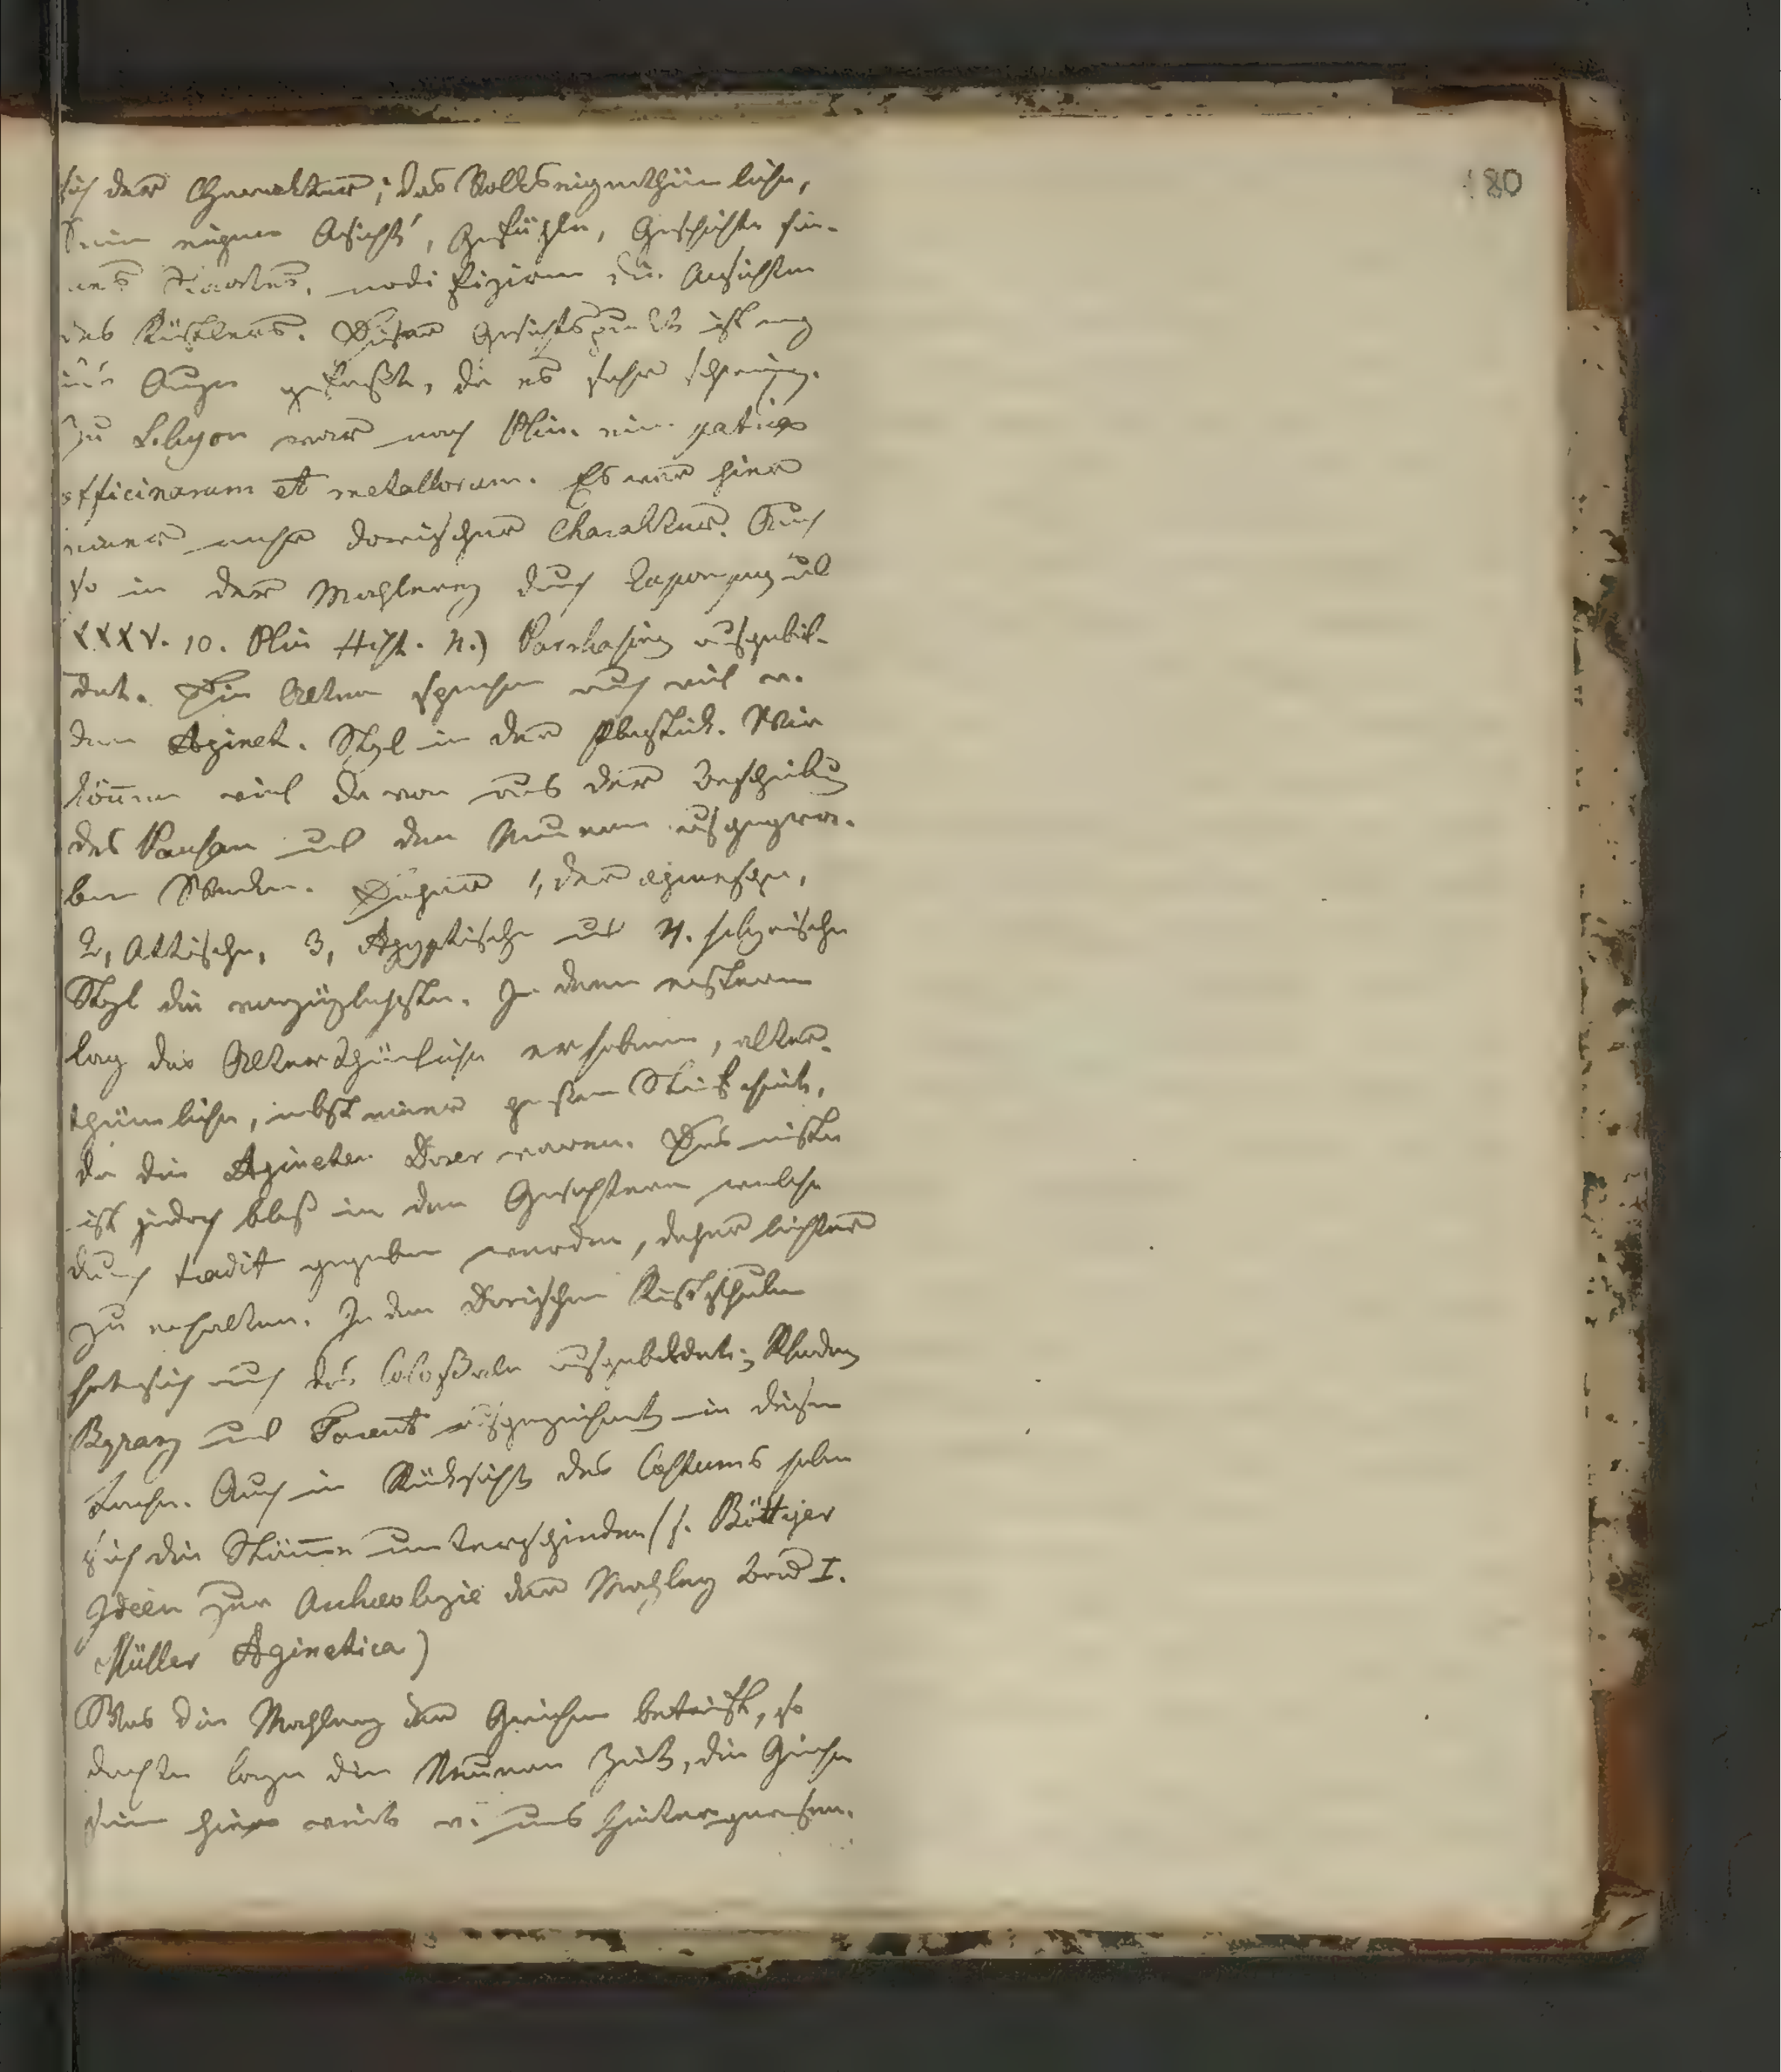 180
sich der Charakter; das Volkseigenthümliche,
Seine eigene Ansicht, Gefühle, Geschichte sei-
nes Staates, modifiziren die Ansichten
des Künstlers. Dieser Gesichtspunkt ist
ins Auge gefaßt, da es sehr schwierig.
Zu Sikyon war nach Plin. eine patria
officinarum et metallorum. Es war hier
immer mehr dorischer Charakter. Auch
so in der Mahlerey durch
XXXV. 10. Plin Hist. N.) Parrhasius ausgebil-
det. Die Alten sprechen auch viel v.
dem Äginet. Styl in der Plastick. Wir
können viel davon aus der Beschreibung
des Pausan und den Neuern ausgegra-
benen Werken. Daher 1, der äginetische,
2, Attische, 3, Ägyptische und 4. sikyonische
Styl die vorzüglichsten. In dem erstern
lag das Alterthümliche erhabene, alter-
thümliche, nebst einer großen Steifheit,
da die Ägineten Dorer waren. Das meiste
ist jedoch bloß in den Gesichtern welche
durch tradit gegeben wurden, daher leichter
zu erhalten. In den Dorischen Kunstschulen
hat sich auch das Coloßale ausgebildet; Rhodus
Byzanz und Tarent ausgezeichnet in diesem
Fache. Auch in Rücksicht des Costums haben
sich die Stämme unterschieden (s. Böttiger
Ideen zur Archaeologie der Mahlerey Band I.
Müller Äginetica)
Was die Mahlerey der Griechen betrifft, so
dachte lange die Neueren Zeit, die Griechen
seien hier weit v. uns